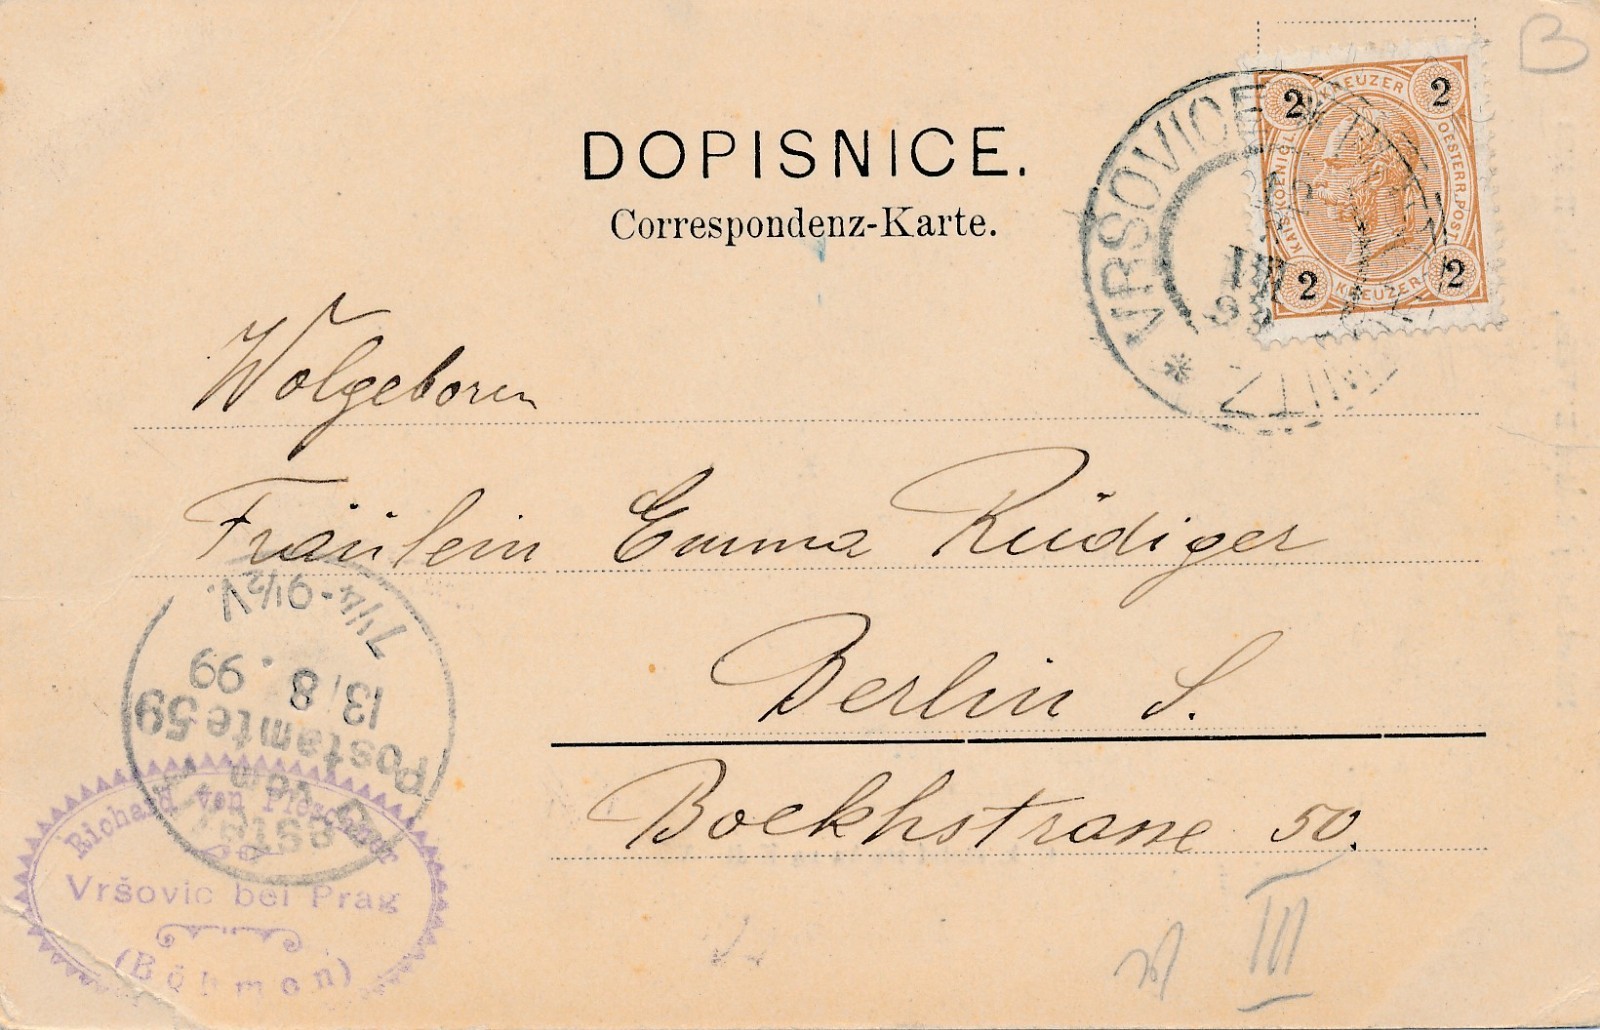 B
DOPISNICE.
Correspondenz-Karte.
2 KREUZER 2
KAIS. KOENIGL. OESTERR. POST
2 KREUZER 2
VRSOVICE
12
99
Wolgeboren
Fräulein Emma Rüdiger
Berlin S.
Boekhstrasse 50.
Bestellt
vom
Postamte 59
13/8. 99
7¼-9½V.
Richard von
Vršovic bei Prag
(Böhmen)
III